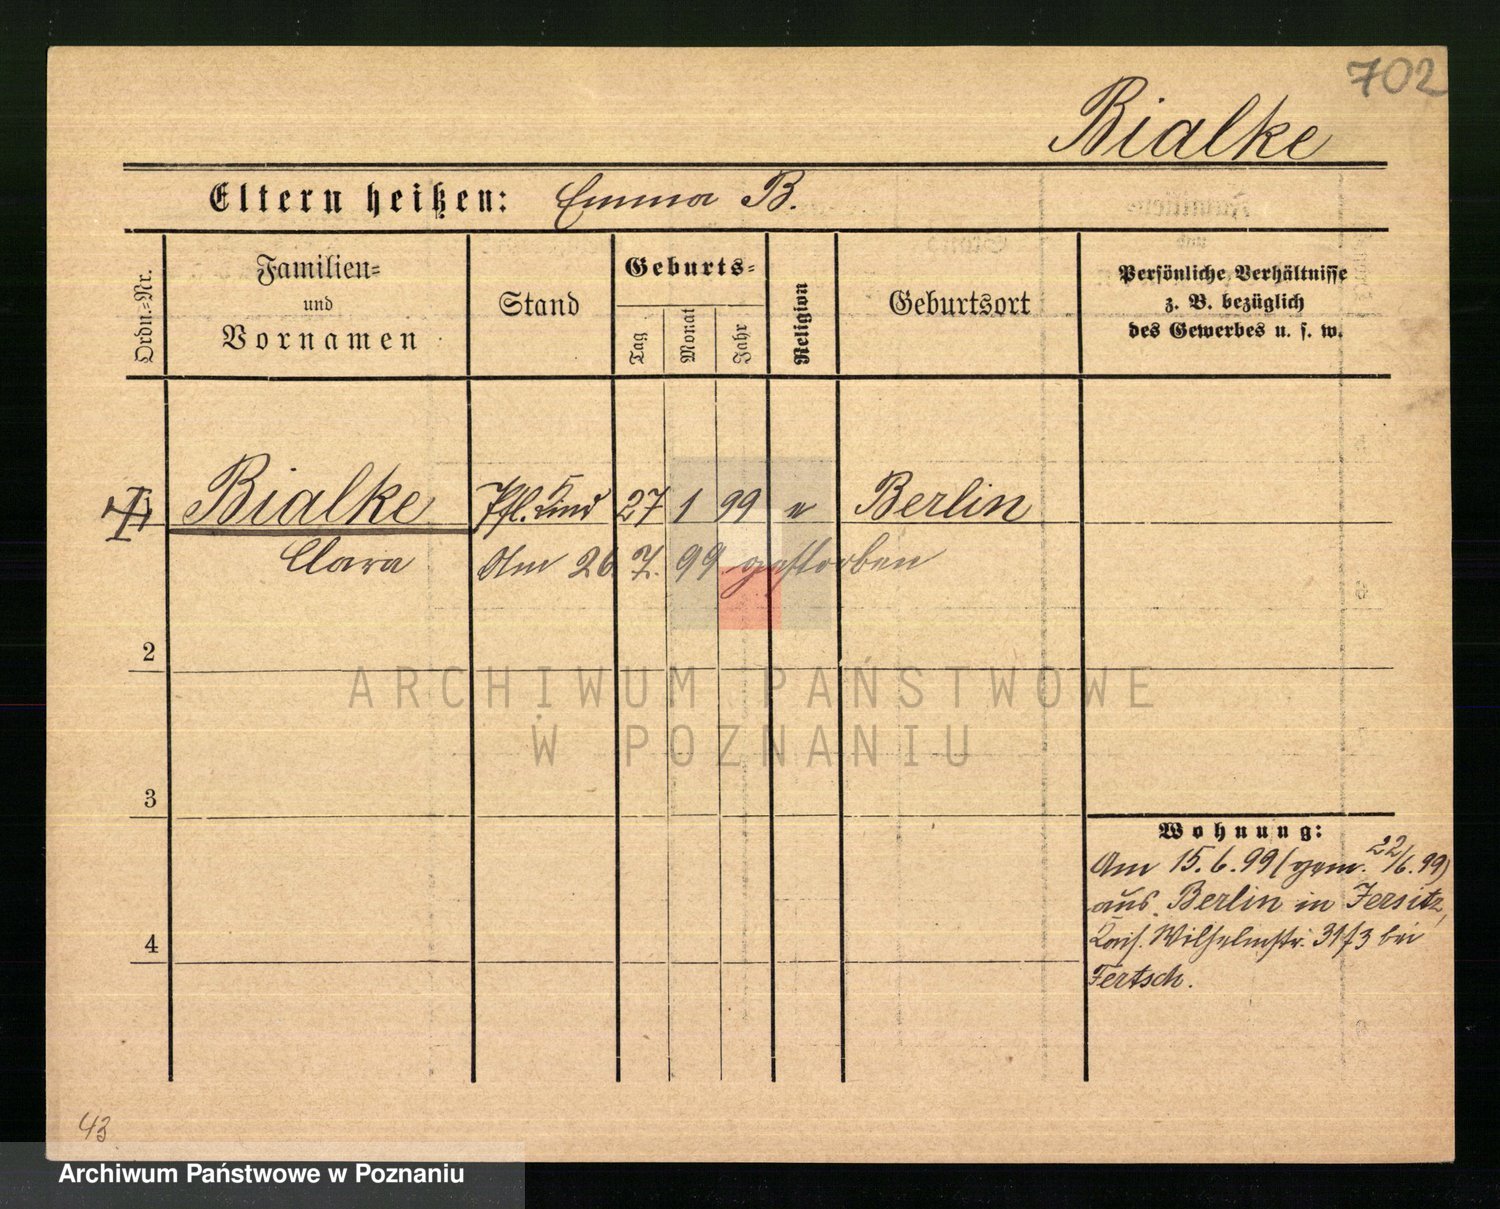 702
Bialke
Eltern heißen: Emma B.
Ordn.-Nr.
Familien-
und
Vornamen
Stand
Geburts-
Tag
Monat
Jahr
Religion
Geburtsort
Persönliche Verhältnisse
z. B. bezüglich
des Gewerbes u. s. w.
1 Bialke Pfl. Kind 27 1 99 e Berlin
Clara Am 26. 7. 99 gestorben
2
ARCHIWUM PAŃSTWOWE
W POZNANIU
3
Wohnung:
Am 15. 6. 99 (gem. 22/6. 99)
aus Berlin in Jersitz,
Kais. Wilhelmstr. 31/3 bei
Fertsch.
4
43
Archiwum Państwowe w Poznaniu